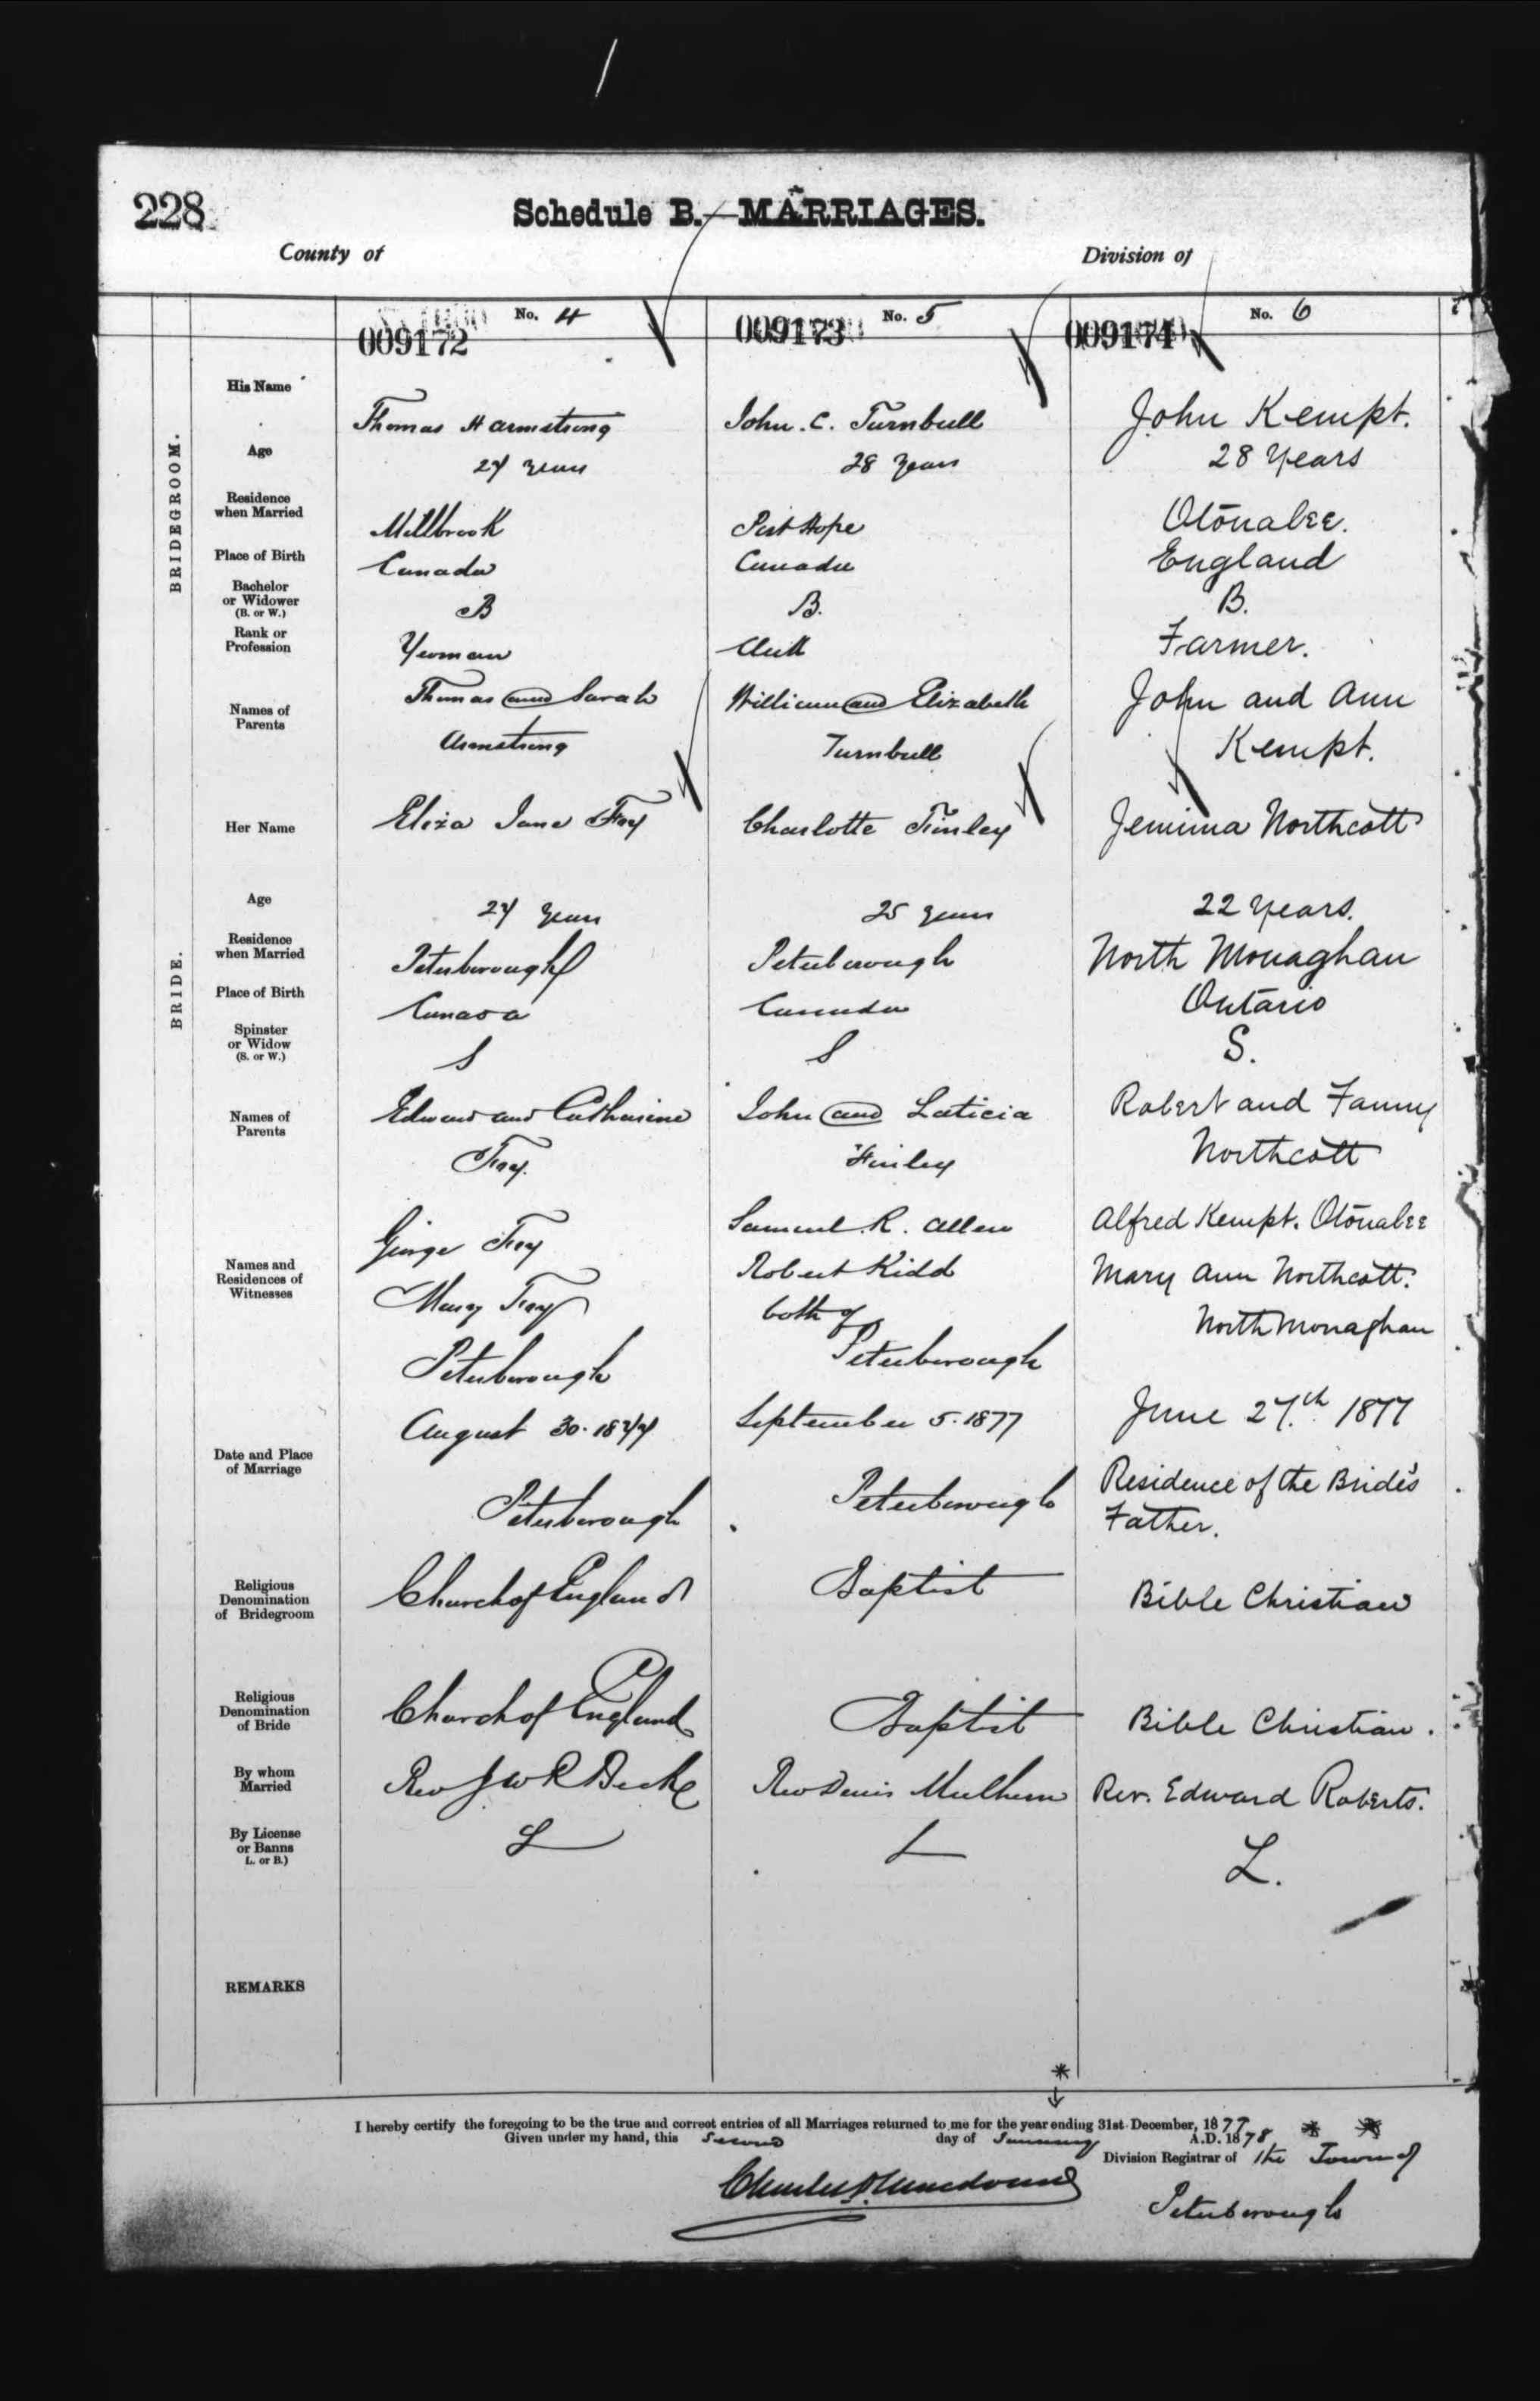 228
Schedule B.—MARRIAGES.
County of
Division of
No. 4
009172
No. 5
009173
No. 6
009174
BRIDEGROOM.
His Name
Thomas H Armstrong
John. C. Turnbull
John Kempt.
Age
27 years
28 years
28 Years
Residence
when Married
Millbrook
Port Hope
Otonabee.
Place of Birth
Canada
Canada
England
Bachelor
or Widower
(B. or W.)
B
B.
B.
Rank or
Profession
Yeoman
Clerk
Farmer.
Names of
Parents
Thomas and Sarah
Armstrong
William and Elizabeth
Turnbull
John and Ann
Kempt.
BRIDE.
Her Name
Eliza Jane
Charlotte Finley
Jemima Northcott
Age
27 years
25 years
22 years.
Residence
when Married
Peterborough
Peterborough
North Monaghan
Place of Birth
Canada
Canada
Ontario
Spinster
or Widow
(S. or W.)
S
S
S.
Names of
Parents
Edward and Catharine
John and Laticia
Finley
Robert and Fanny
Northcott
Names and
Residences of
Witnesses
George
Mary
Peterborough
Samuel. R. Allen
Robert Kidd
both of
Peterborough
Alfred Kempt. Otonabee
Mary Ann Northcott.
North Monaghan
Date and Place
of Marriage
August 30. 1877
Peterborough
September 5. 1877
Peterborough
June 27.th 1877
Residence of the Bride's
Father.
Religious
Denomination
of Bridegroom
Church of England
Baptist
Bible Christian
Religious
Denomination
of Bride
Church of England
Baptist
Bible Christian.
By whom
Married
Rev J W R Beck
Rev Denis Mulhern
Rev. Edward Roberts.
By License
or Banns
L. or B.)
L
L
L.
REMARKS
I hereby certify the foregoing to be the true and correct entries of all Marriages returned to me for the year ending 31st December, 1877
Given under my hand, this Second day of January A.D. 1878
Division Registrar of the Town of
Charles
Peterborough